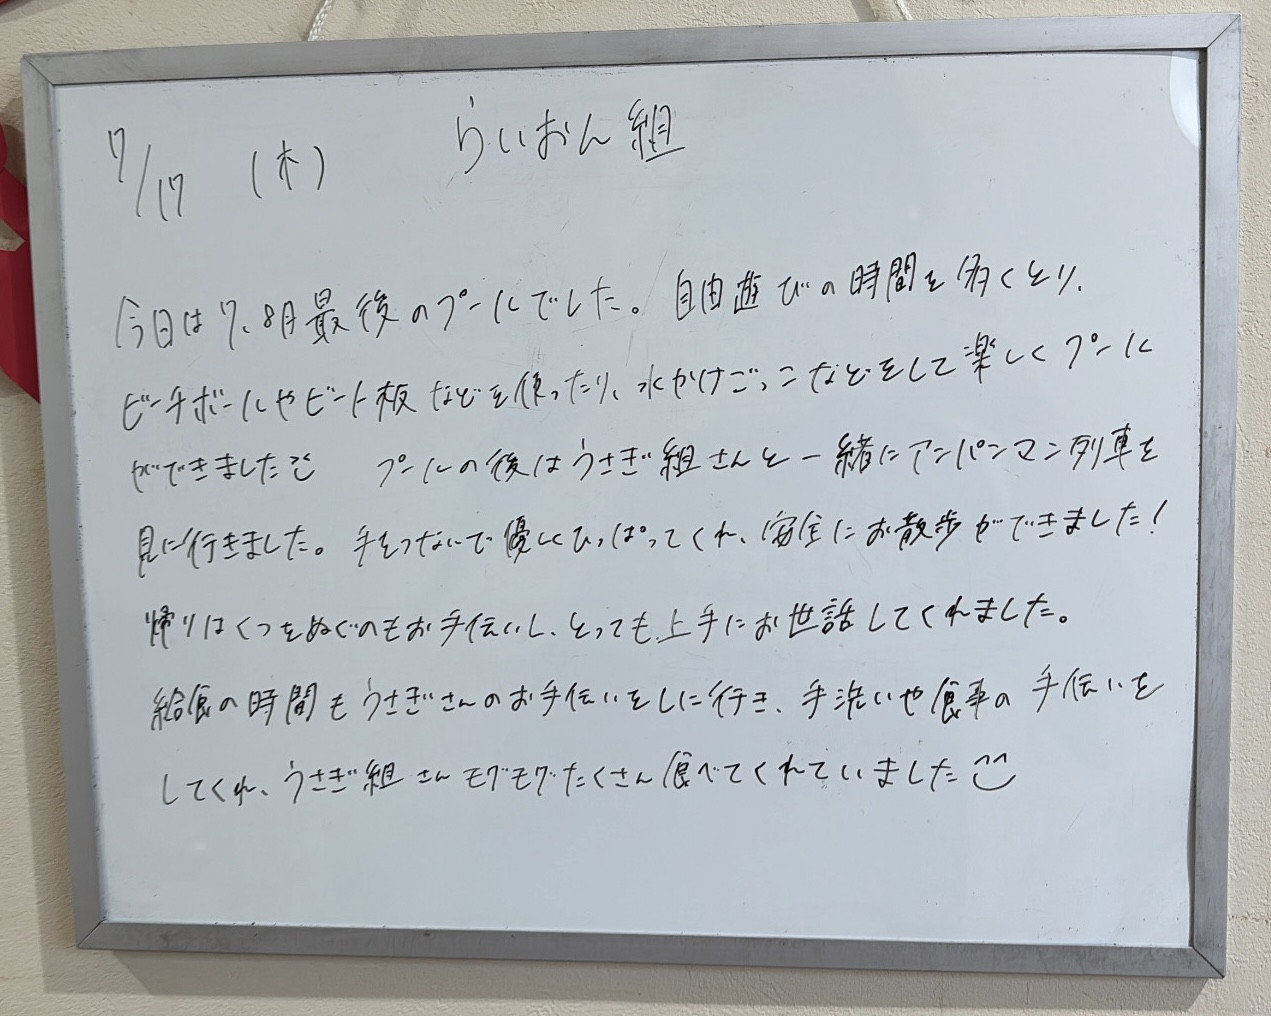 7/17 (木) らいおん組
今日は7、8月最後のプールでした。自由遊びの時間を多くとり、
ビーチボールやビート板などを使ったり、水かけごっこなどをして楽しくプール
ができました
プールの後はうさぎ組さんと一緒にアンパンマン列車を
見に行きました。手をつないで優しくひっぱってくれ、安全にお散歩ができました!
帰りはくつをぬぐのもお手伝いし、とっても上手にお世話してくれました。
給食の時間もうさぎさんのお手伝いをしに行き、手洗いや食事の手伝いを
してくれ、うさぎ組さんモグモグたくさん食べてくれていました